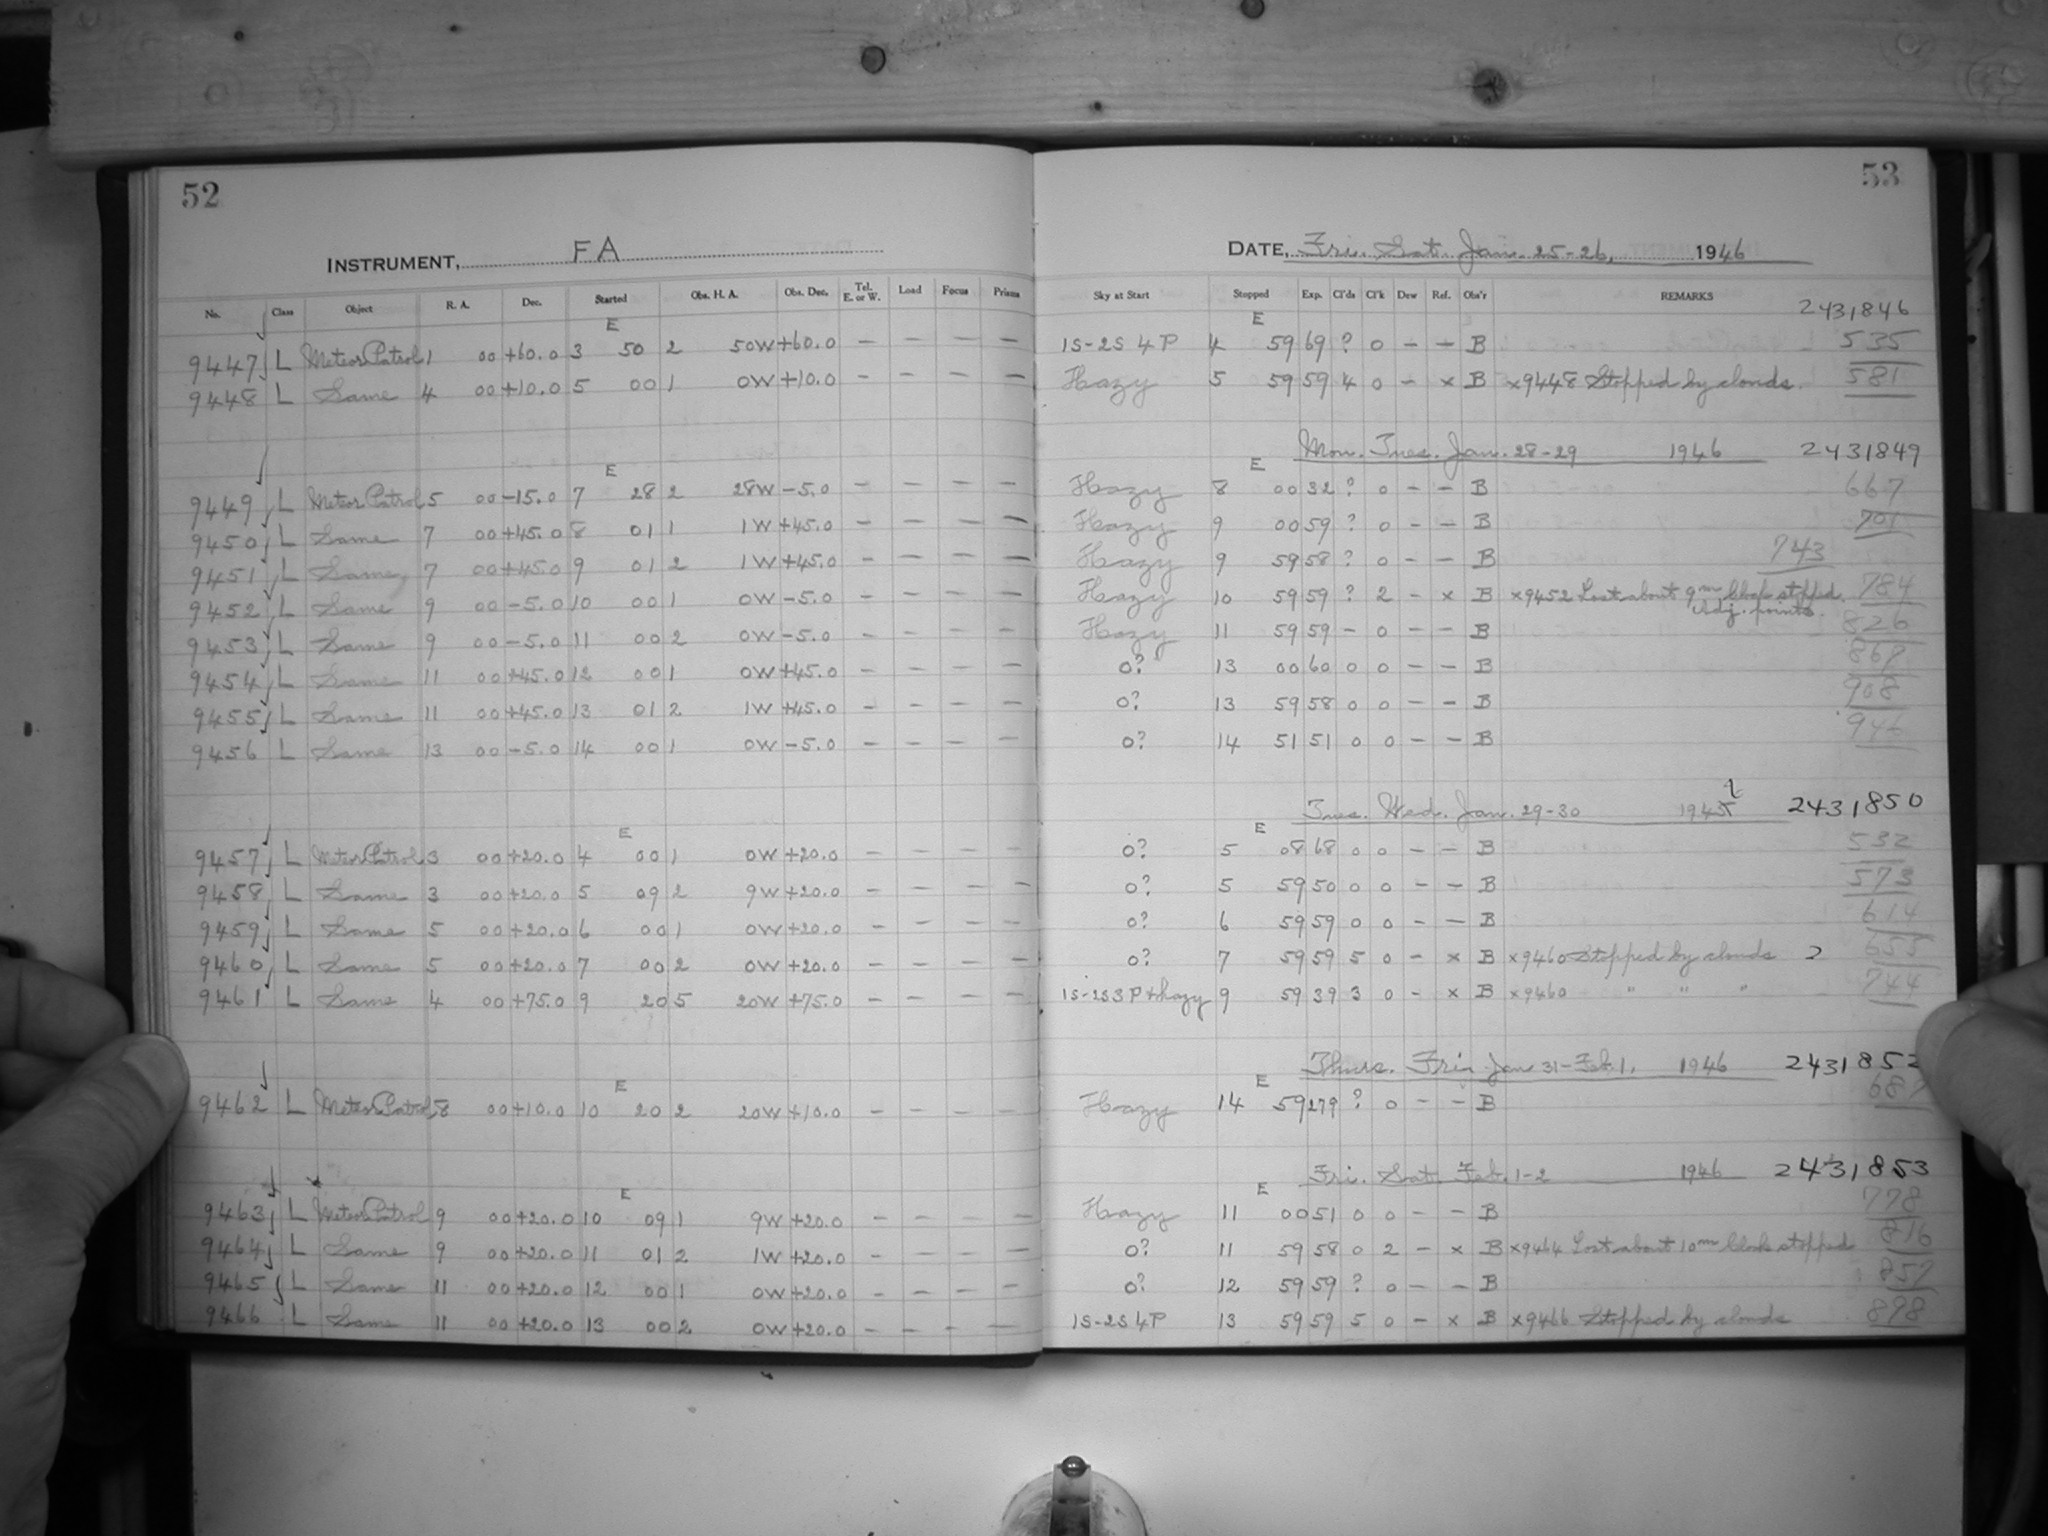 52
INSTRUMENT, FA
No. Class Object R. A. Dec. Started Obs. H. A. Obs. Dec. Tel. E. or W. Load Focus Prisms
E
9447 L Meteor Patrol 1 00 +60.0 3 50 2 50W +60.0 — — — —
9448 L Same 4 00 +10.0 5 00 1 0W +10.0 — — — —
E
9449 L Meteor Patrol 5 00 -15.0 7 28 2 28W -5.0 — — — —
9450 L Same 7 00 +45.0 8 01 1 1W +45.0 — — — —
9451 L Same 7 00 +45.0 9 01 2 1W +45.0 — — — —
9452 L Same 9 00 -5.0 10 00 1 0W -5.0 — — — —
9453 L Same 9 00 -5.0 11 00 2 0W -5.0 — — — —
9454 L Same 11 00 +45.0 12 00 1 0W +45.0 — — — —
9455 L Same 11 00 +45.0 13 01 2 1W +45.0 — — — —
9456 L Same 13 00 -5.0 14 00 1 0W -5.0 — — — —
E
9457 L Meteor Patrol 3 00 +20.0 4 00 1 0W +20.0 — — — —
9458 L Same 3 00 +20.0 5 09 2 9W +20.0 — — — —
9459 L Same 5 00 +20.0 6 00 1 0W +20.0 — — — —
9460 L Same 5 00 +20.0 7 00 2 0W +20.0 — — — —
9461 L Same 4 00 +75.0 9 20 5 20W +75.0 — — — —
E
9462 L Meteor Patrol 8 00 +10.0 10 20 2 20W +10.0 — — — —
E
9463 L Meteor Patrol 9 00 +20.0 10 09 1 9W +20.0 — — — —
9464 L Same 9 00 +20.0 11 01 2 1W +20.0 — — — —
9465 L Same 11 00 +20.0 12 00 1 0W +20.0 — — — —
9466 L Same 11 00 +20.0 13 00 2 0W +20.0 — — — —
53
DATE, Fri. Sat. Jan. 25-26, 1946
Sky at Start Stopped Exp. Cl'ds Cl'k Dew Ref. Obs'r REMARKS
E 2431846
1S-2S 4P 4 59 69 ? 0 — — B 535
Hazy 5 59 59 4 0 — x B x9448 Stopped by clouds. 581
Mon. Tues. Jan. 28-29 1946 2431849
E
Hazy 8 00 32 ? 0 — — B 667
Hazy 9 00 59 ? 0 — — B 701
Hazy 9 59 58 ? 0 — — B 743
Hazy 10 59 59 ? 2 — x B x9452 Lost about 9m Clock stopped. 784
Adj. points.
Hazy 11 59 59 — 0 — — B 826
0? 13 00 60 0 0 — — B 867
0? 13 59 58 0 0 — — B 908
0? 14 51 51 0 0 — — B 946
Tues. Wed. Jan. 29-30 1945 2431850
E
0? 5 08 68 0 0 — — B 532
0? 5 59 50 0 0 — — B 573
0? 6 59 59 0 0 — — B 614
0? 7 59 59 5 0 — x B x9460 Stopped by clouds 2 655
1S-2S 3P + hazy 9 59 39 3 0 — x B x9460 " " " 744
Thurs. Fri. Jan 31-Feb. 1, 1946 2431852
E
Hazy 14 59 279 ? 0 — — B
Fri. Sat. Feb. 1-2 1946 2431853
E
Hazy 11 00 51 0 0 — — B 778
0? 11 59 58 0 2 — x B x9464 Lost about 10m Clock stopped 816
0? 12 59 59 ? 0 — — B 857
1S-2S 4P 13 59 59 5 0 — x B x9466 Stopped by clouds 898